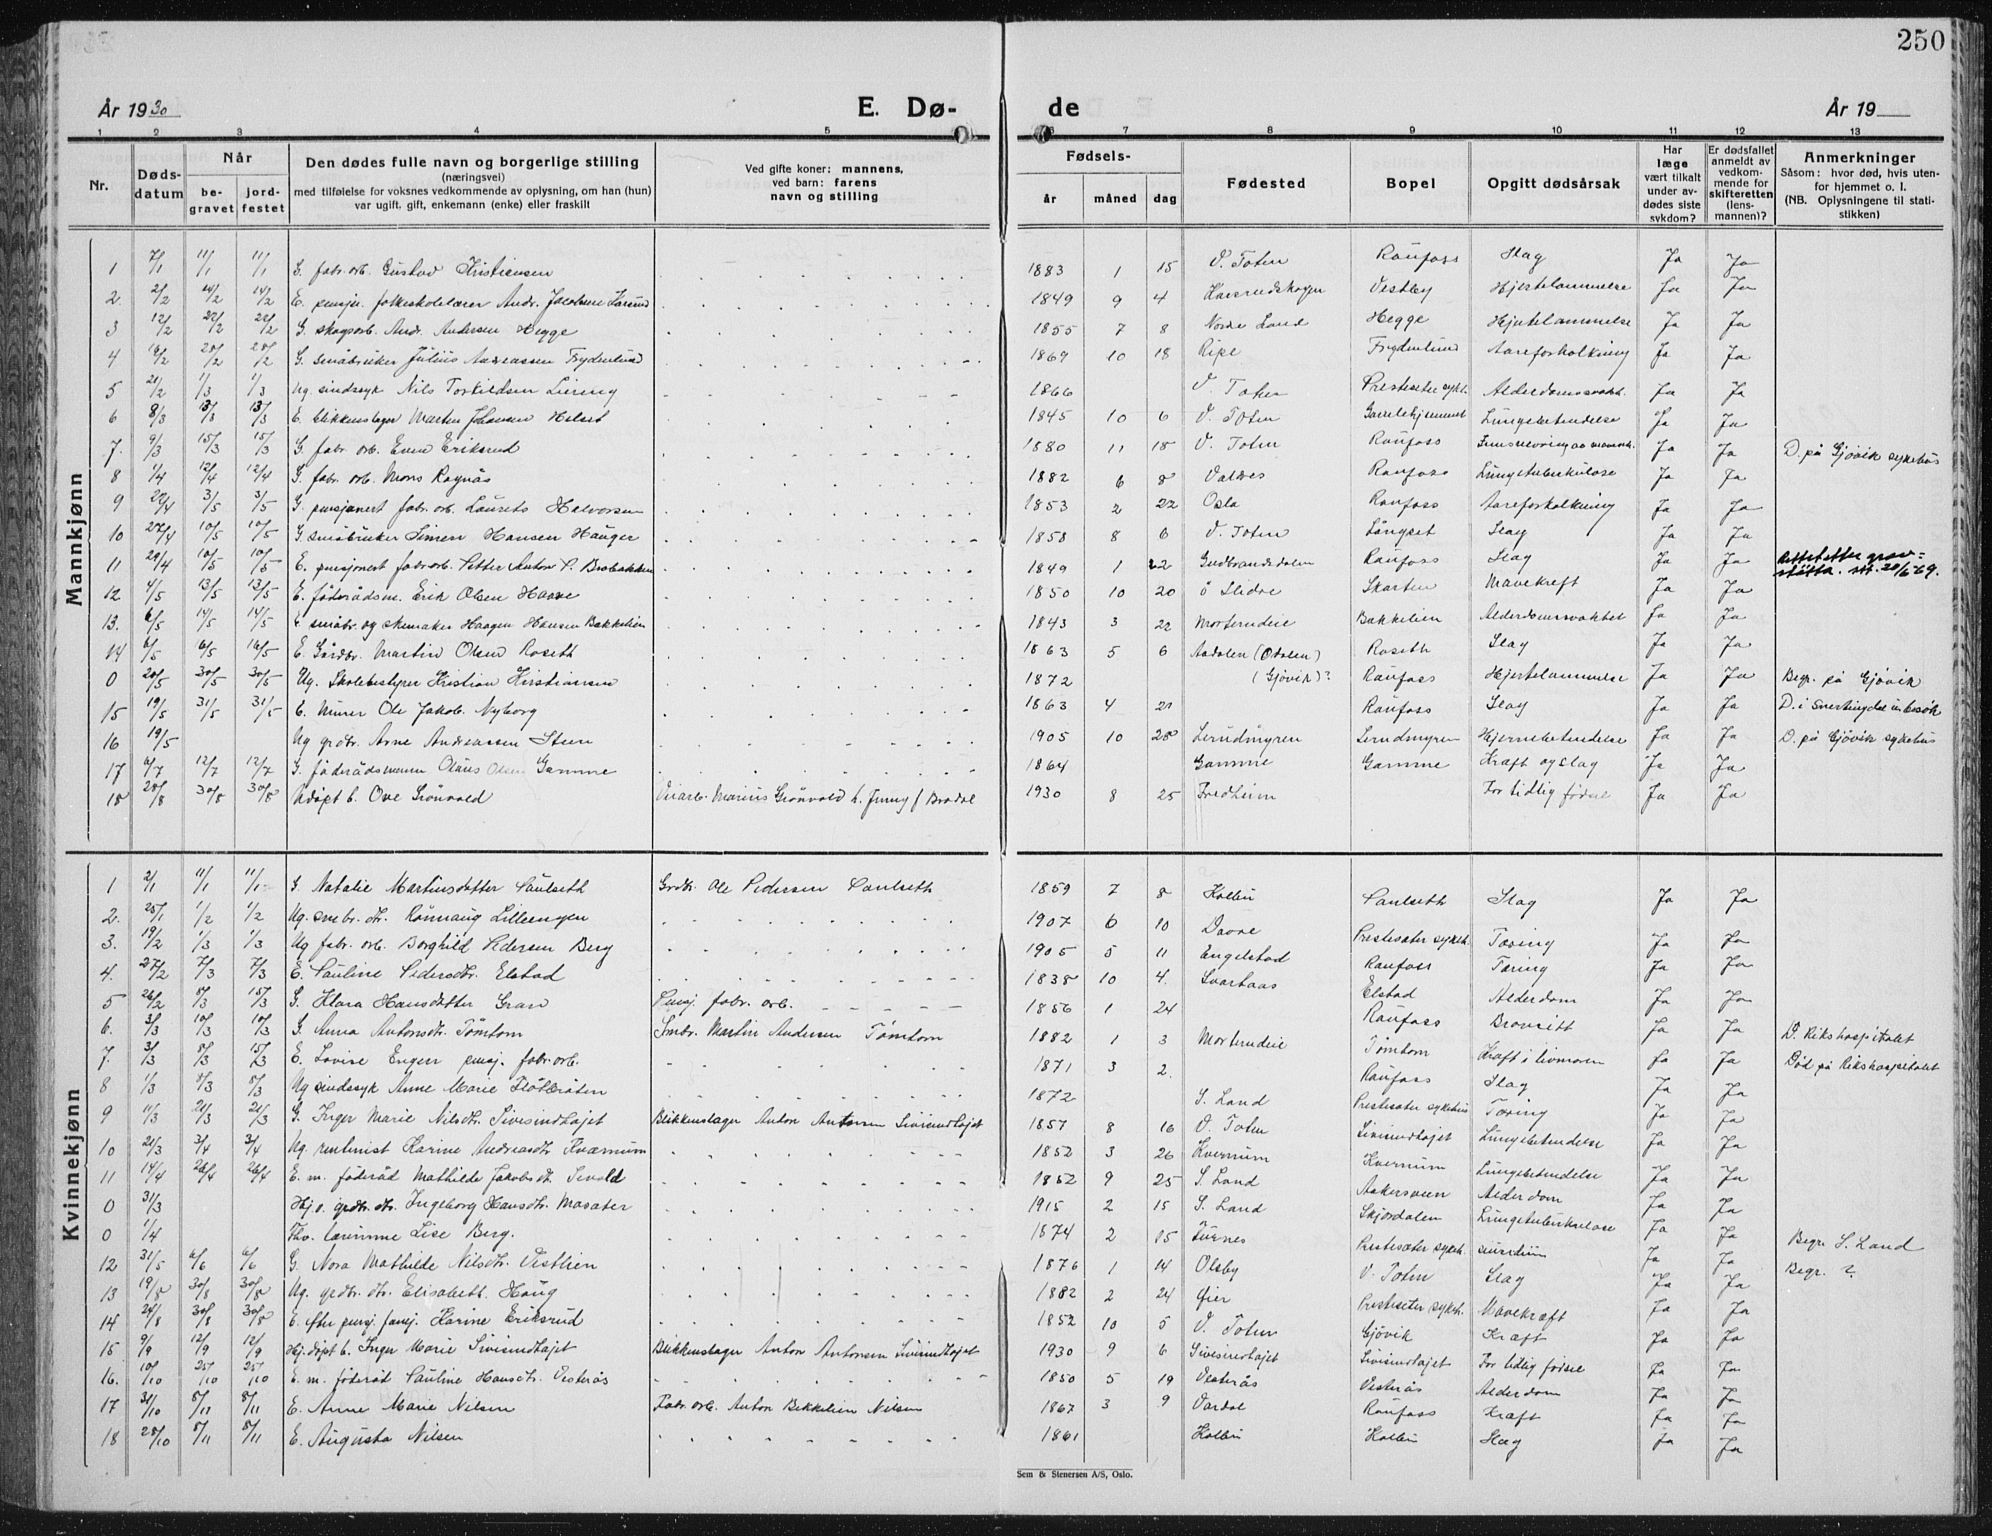 250
År 1930 E. Dø- de År 19
1 2 3 4 5 6 7 8 9 10 11 12 13
Nr. Døds-datum Når be-gravet jord-festet Den dødes fulle navn og borgerlige stilling (næringsvei) med tilføielse for voksnes vedkommende av oplysning, om han (hun) var ugift, gift, enkemann (enke) eller fraskilt Ved gifte koner: mannens, ved barn: farens navn og stilling Fødsels- år måned dag Fødested Bopel Opgitt dødsårsak Har læge vært tilkalt under avdødes siste sykdom? Er dødsfallet anmeldt av vedkommende for skifteretten (lensmannen)? Anmerkninger Såsom: hvor død, hvis utenfor hjemmet o. l. (NB. Oplysningene til statistikken)
Mannkjønn
1 7/1 11/1 11/1 G. fabr. arb. Gustav Kristiansen 1883 1 15 V. Toten Raufoss Slag Ja Ja
2. 2/2 14/2 14/2 E. pensjn. folkeskolelærer Andr. Jacobsen 1849 9 4 Vestby Hjertelammelse Ja Ja
3 12/2 22/2 22/2 G. skogsarb. Andr. Andersen Hegge 1855 7 8 Nordre Land Hegge Hjertelammelse Ja Ja
4 16/2 28/2 28/2 G. småbruker Julius Andreassen Frydenlund 1869 10 18 Ripe Frydenlund Aareforkalkning Ja Ja
5 21/2 1/3 1/3 Ug. sindssyk Nils Torkildsen Liering 1866 V. Toten Prestesæter sykh. Alderdomssvakh. Ja Ja
6 8/3 13/3 13/3 E. blikkenslager Martin Johansen Helset 1845 10 6 V. Toten Gamlehjemmet Lungebetendelse Ja Ja
7. 9/3 15/3 15/3 G. fabr. arb. Even Eriksrud 1880 11 18 V. Toten Raufoss Ja Ja D. på Gjøvik sykehus
8 1/4 12/4 12/4 G. fabr. arb. Mons Rognås 1882 6 8 Valdres Raufoss Lungetuberkulose Ja Ja
9 22/4 3/5 3/5 G. pensjonert fabr. arb. Laurits Halvorsen 1853 2 22 Oslo Raufoss Aareforkalkning Ja Ja
10 27/4 10/5 10/5 G. småbruker Simen Hansen Hauger 1858 8 6 V. Toten Långset Slag Ja Ja
11 29/4 10/5 10/5 E. pensjonert fabr. arb. Petter Anton P. Brobakken 1849 1 22 Gudbrandsdalen Raufoss Slag Ja Ja Rettet etter gravstøtta. 20/6-69.
12 4/5 13/5 13/5 E. føderådsm. Erik Olsen Haave 1850 10 20 Ø Slidre Skarten Mavekreft Ja Ja
13. 6/5 14/5 14/5 E småbr. og skomaker Haagen Hansen Bakkelien 1843 3 22 Morterudeie Bakkelien Alderdomssvakhet Ja Ja
14 6/5 6/5 16/5 E. Gårdbr. Martin Olsen Roseth 1863 5 6 Aadalen (Odalen) Roseth Slag Ja Ja
0 20/5 30/5 30/5 Ug. Skolebestyrer Kristian Kristiansen 1872 (Gjøvik)? Raufoss Hjertelammelse Ja Ja Begr. på Gjøvik
15 19/5 31/5 31/5 E. murer Ole Jakob. Nyborg 1863 4 21 Raufoss Slag Ja Ja D. i Snertingdal på besøk
16 19/5 Ug grdbr. Arne Andreassen Steen 1905 10 28 Lerudmyren Lerudmyren Hjernebetendelse Ja Ja D. på Gjøvik sykehus
17 6/7 12/7 12/7 G. føderådsmann Olaus Olsen Gamme 1864 Gamme Gamme Kraft og slag Ja Ja
18 28/8 30/8 30/8 Udøpt b. Ove Grönvold Veiarb. Marius Grönvold h. Jenny f Bradal 1930 8 25 Fredheim For tidlig fødsel Ja Ja
Kvinnekjønn
1 2/1 11/1 11/1 G. Natalie Martinsdatter Paulseth Grdb. Ole Pedersen Paulseth 1859 7 8 Kolbu Paulseth Slag Ja Ja
2. 25/1 1/2 1/2 Ug. Rönnaug Lillesngen 1907 6 10 Dovre Prestesæter sykeh. Tæring Ja Ja
3. 19/2 1/3 1/3 Ug fabr. arb. Borghild Pedersen Berg 1905 5 11 Engelstad Raufoss Tæring Ja Ja
4. 27/2 7/3 7/3 E. Pauline Pedersdtr. Elstad 1838 10 4. Svarthaas Elstad Alderdom Ja Ja
5 26/2 8/3 15/3 G. Klara Hansdatter Gran Pensj. fabr. arb. 1856 1 24 Raufoss Bronsitt Ja Ja
6. 3/3 10/3 10/3 G. Anna Antonsdtr. Tømtom Smbr. Martin Andersen Tømtom 1882 1 3 Morterudeie Tømtom Kraft i livmoren Ja Ja D. Rikshospitalet
7. 3/3 8/3 15/3 E. Lovise Engen pensj. fabr. arb. 1871 3 2. Raufoss Slag Ja Ja Død på Rikshospitalet
8 1/3 8/3 8/3 Ug sindssyk Anne Marie Flötbråten 1872 S. Land Prestesæter sykehus Tæring Ja Ja
9 11/3 21/3 21/3 G. Inger Marie Nilsdtr. Sivesindhøjet Blikkenslager Anton Antonsen Sivesindhøjet 1857 8 16 V. Toten Sivesindhøjet Lungebetendelse Ja Ja
10 21/3 3/4 3/4 Ug. rentenist Karine Andreasdtr Kværnum 1852 3 26 Kvernum Kvernum Lungebetendelse Ja Ja
11 14/4 26/4 26/4 E. m. føderåd Mathilde Jakobsdt. 1852 9 25 S. Land Aakersveen Alderdom Ja Ja
0 31/3 Hj.v. grdbr. dtr. Ingeborg Hansdtr. Masæter 1915 2 15 S. Land Skjördalen Lungetuberkulose Ja Ja Begr. S. Land
0 1/4 Fhv. lærerinne Lise Berg. 1874 2 15 Furnes Prestesæter sykeh. Ja Ja Begr. ?
12 31/5 6/6 6/6 G. Nora Mathilde Nilsdtr. Vestlien 1876 1 14 Olsby V. Toten Slag Ja Ja
13 19/8 30/8 30/8 Ug. grdbr. dtr. Elisabeth Haug 1882 2 24 Øier Prestesæter sykeh. Mavekræft Ja Ja
14 24/8 30/8 30/8 E. efter pensj. Karine Eriksrud 1852 10 5 V. Toten Gjøvik Kræft Ja Ja
15 9/9 12/9 12/9 Hj.døpt b. Inger Marie Sivesindhøjet Blikkenslager Anton Antonsen Sivesindhøjet 1930 9 6 Sivesindhøjet Sivesindhøjet For tidlig fødsel Ja Ja
16. 10/10 25/10 25/10 E. m. føderåd Pauline Hansdtr. Vesterås 1850 5 19 Vesterås Vesterås Alderdom Ja Ja
17 31/10 8/11 8/11 E. Anne Marie Nilsen Fabr. arb. Anton Bekkelien Nilsen 1867 3 9 Vardal Raufoss Kræft Ja Ja
18 28/10 8/11 8/11 E. Augusta Nilsen 1861 Kolbu Kolbu Slag Ja Ja
Sem & Stenersen A/S, Oslo.